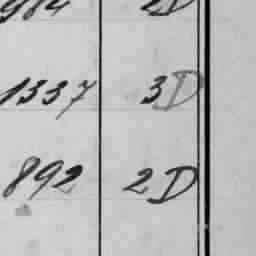 984 2D
1337 3D
892 2D